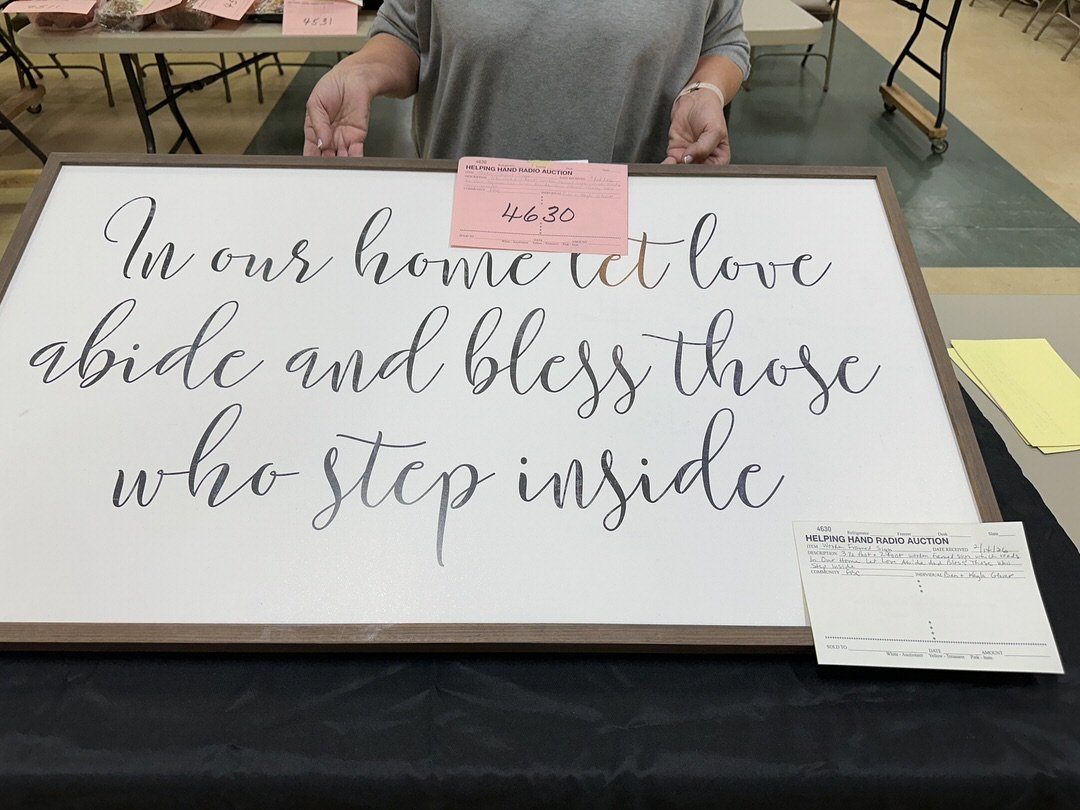 4531
4630
HELPING HAND RADIO AUCTION
4630
In our home let love
abide and bless those
who step inside
4630 Refrigerator Freezer Desk Slate
HELPING HAND RADIO AUCTION
ITEM Wooden Framed Sign DATE RECEIVED
DESCRIPTION 3 1/2 foot x 2 foot wooden framed sign which reads
In Our Home Let Love Abide And Bless Those Who
Step Inside
COMMUNITY INDIVIDUAL Ben + Kayla Glover
SOLD TO DATE AMOUNT
White - Auctioneer Yellow - Treasurer Pink - Item